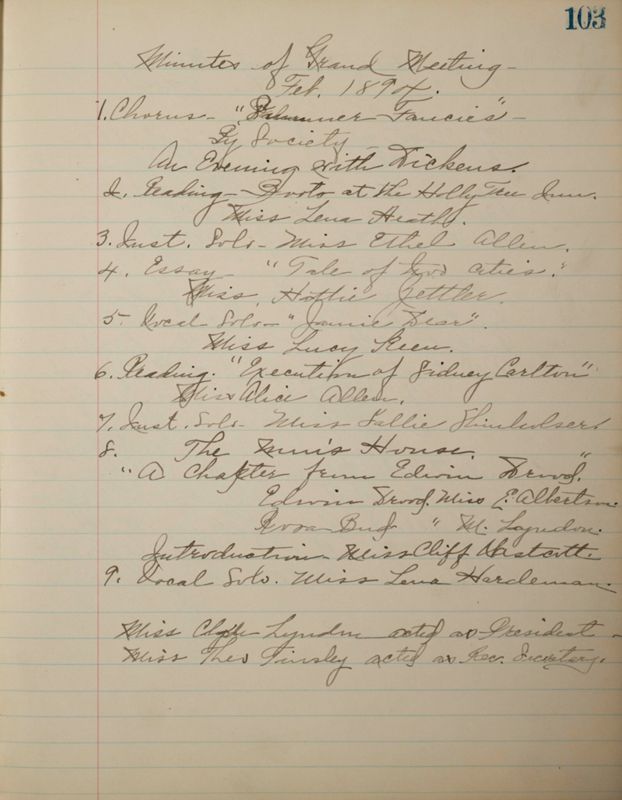 103
Minutes of Grand Meeting -
Feb. 1894.
1. Chorus - "Summer Fancies" -
By Society -
An Evening with Dickens.
2. Reading - Boots at the Holly Tree Inn.
Miss Lena Heath.
3. Inst. Solo - Miss Ethel Allen.
4. Essay - "Tale of Two Cities."
Miss. Hattie Jettler.
5. Vocal Solo - "Jamie Dear".
Miss Lucy Keen.
6. Reading. "Execution of Sidney Carlton"
Miss Alice Allen.
7. Inst. Solo - Miss Sallie Shinholser.
8. The Nun's House.
"A Chapter from Edwin Drood."
Edwin Drood. Miss E. Albertson.
Rosa Bud " M. Lyndon.
Introduction - Miss Cliff Westcott.
9. Vocal Solo. Miss Lena Hardeman.
Miss Lyndon acted as President -
Miss Theo Tinsley acted as Rec. Secretary.